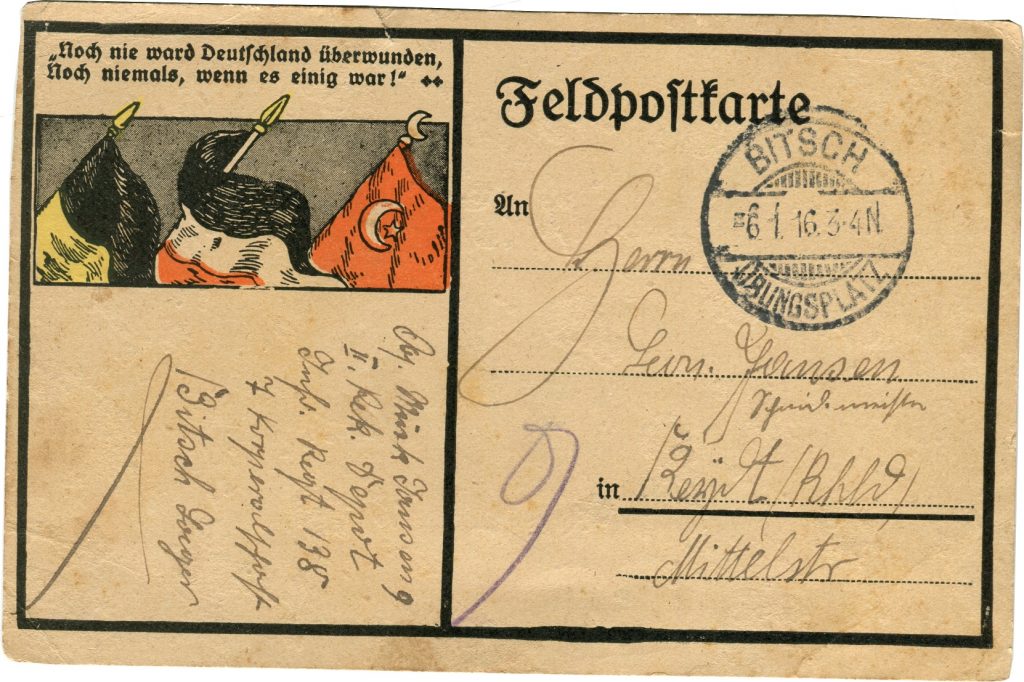 „Noch nie ward Deutschland überwunden,
Noch niemals, wenn es einig war!“
Feldpostkarte
BITSCH
6.1.16.3-4N.
ÜBUNGSPLATZ
An
Herrn
Jansen
in Reydt (Rhld)
Mittelstr
II. Rek. Depot
Inf. Regt 138
7 Korporalschaft
Bitsch Lager